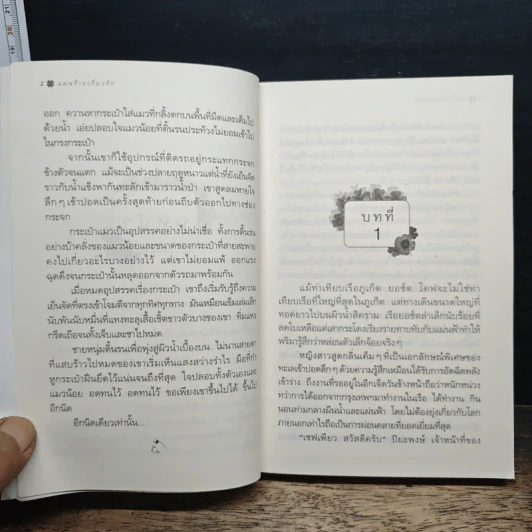 2 แผนร้ายเกี่ยวรัก
ออก ควานหากระเป๋าใส่แมวที่กลิ้งตกบนพื้นที่มืดและเต็มไป
ด้วยน้ำ เอ่ยปลอบใจแมวน้อยที่ดิ้นรนประท้วงไม่ยอมเข้าไป
ในกรงกระเป๋า
จากนั้นเขาก็ใช้อุปกรณ์ที่ติดรถอยู่กระแทกกระจก
ข้างตัวจนแตก แม้จะเป็นช่วงปลายฤดูหนาวแต่น้ำที่ยังเย็นจัด
ราวกับน้ำแข็งพากันทะลักเข้ามาราวน้ำป่า เขาสูดลมหายใจ
ลึกๆ เข้าปอดเป็นครั้งสุดท้ายก่อนถีบตัวออกไปทางช่อง
กระจก
กระเป๋าแมวเป็นอุปสรรคอย่างไม่น่าเชื่อ ทั้งการดิ้นรน
อย่างบ้าคลั่งของแมวน้อยและขนาดของกระเป๋าที่สายสะพาย
คงไปเกี่ยวอะไรบางอย่างไว้ แต่เขาไม่ยอมแพ้ ออกแรง
ฉุดดึงจนกระเป๋านั้นหลุดออกจากตัวรถมาพร้อมกัน
เมื่อหมดอุปสรรคเรื่องกระเป๋า เขาถึงเริ่มรับรู้ถึงความ
เย็นจัดที่ตรงเข้าโจมตีจากทุกทิศทุกทาง มันเหมือนเข็มเล่มเล็ก
นับพันนับหมื่นที่แทงทะลุเสื้อเชิ้ตขาวตัวบางของเขา ทิ่มแทง
กรีดเถือจนทั้งเจ็บและชาไปหมด
ชายหนุ่มดิ้นรนเพื่อพุ่งสู่ผิวน้ำเบื้องบน ไม่นานสายตา
ที่แสบร้าวไปหมดของเขาเริ่มเห็นแสงสว่างรำไร มือที่กำ
หูกระเป๋าฝืนยึดไว้แน่นจนถึงที่สุด ใจปลอบทั้งตัวเองและ
แมวน้อย อดทนไว้ อดทนไว้ ขอเพียงเขาขึ้นไปได้ ขึ้นไป
อีกนิด
อีกนิดเดียวเท่านั้น...
บทที่
1
แม้ท่าเทียบเรือภูเก็ต ยอช์ต โคฟจะไม่ใช่ท่า
เทียบเรือที่ใหญ่ที่สุดในภูเก็ต แต่ทางเดินขนาดใหญ่ที่
ทอดยาวไปบนผิวน้ำสีคราม เรือยอช์ตลำเล็กนับร้อยที่
ลดใบเหลือแต่เสากระโดงเรียงรายทาบทับกับแผ่นฟ้าทำให้
พริมารู้สึกว่าหล่อนตัวเล็กจ้อยจริงๆ
หญิงสาวสูดกลิ่นเค็มๆ ที่เป็นเอกลักษณ์พิเศษของ
ทะเลเข้าปอดลึกๆ ด้วยความรู้สึกเหมือนได้รับการอัดฉีดพลัง
เข้าร่าง ถึงงานที่รออยู่ในอีกเจ็ดวันข้างหน้าถือว่าหนักหน่วง
ทว่าการได้ออกจากกรุงเทพฯมาทำงานในเรือ ได้ทำงาน กิน
นอนท่ามกลางผืนน้ำและแผ่นฟ้า โดยไม่ต้องยุ่งเกี่ยวกับโลก
ภายนอกเท่าไรถือเป็นการผ่อนคลายที่ยอดเยี่ยมที่สุด
"เชฟเพียว สวัสดีครับ" ปิยะพงษ์ เจ้าหน้าที่ของ